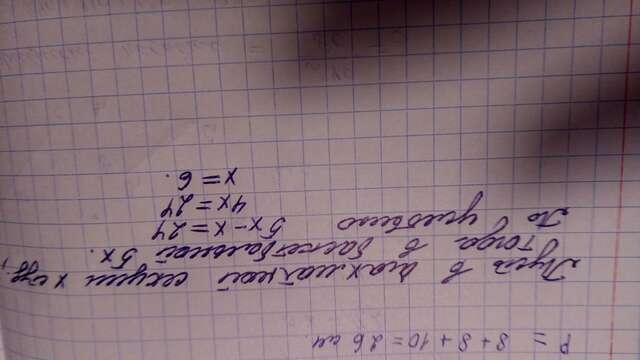 P = 8 + 8 + 10 = 26 см
Пусть в шахматной секции x чел.,
тогда в баскетбольной 5x.
По условию 5x - x = 24
4x = 24
x = 6.